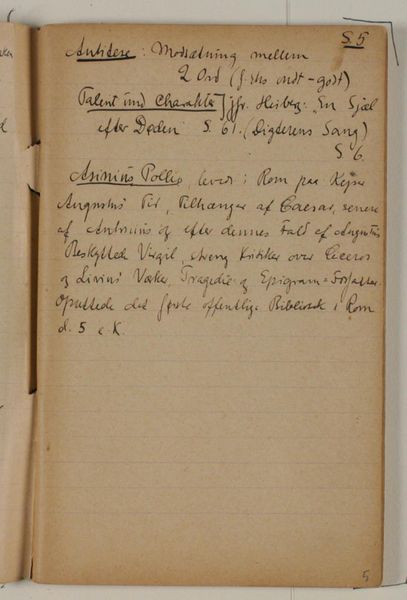 S. 5
Antitese : Modsætning mellem
2 Ord (f. Eks. ondt - godt)
Talent und Charakter] jfr. Heiberg: "En Sjæl
efter Døden" S. 61. (Digterens Sang)
S. 6.
Asinius Pollio, leved i Rom paa Kejser
Augustus' Tid, Tilhænger af Caesar, senere
af Antonius og efter dennes Fald af Augustus
Beskyttede Virgil, streng Kritiker over Ciceros
og Livius' Værker, Tragedie- og Epigram-Forfatter.
Oprettede det første offentlige Bibliotek i Rom
d. 5 e. K.
5